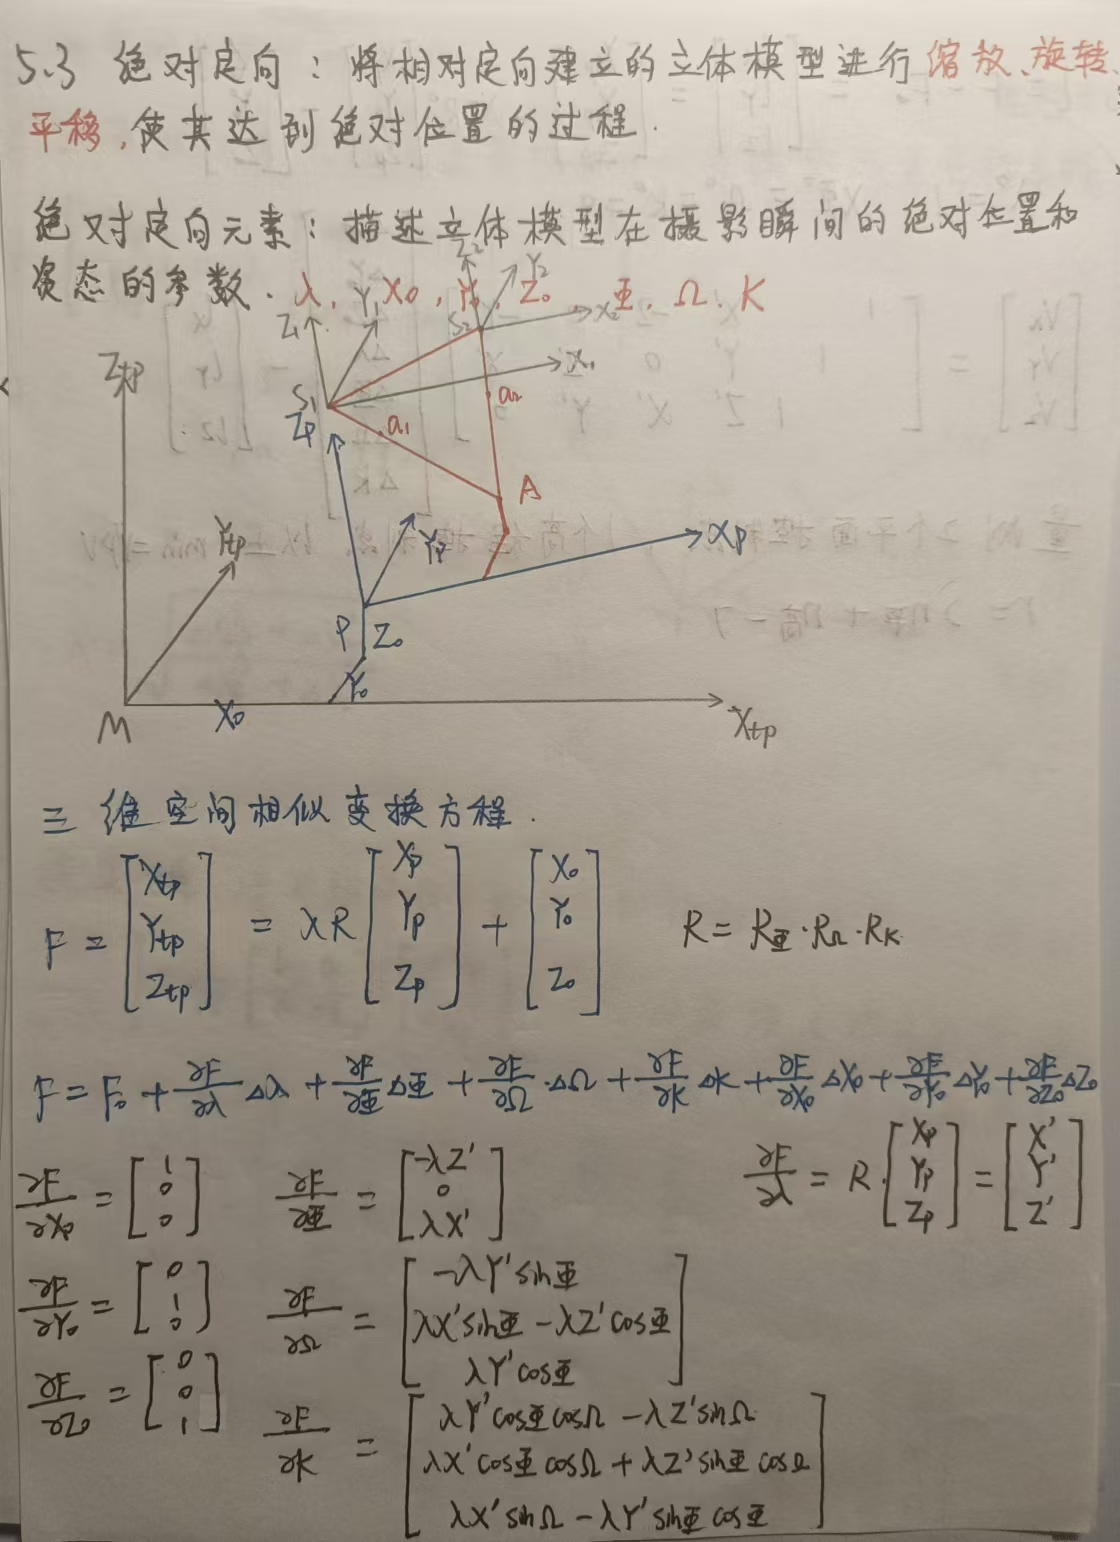 5.3 绝对定向：将相对定向建立的立体模型进行缩放、旋转、
平移，使其达到绝对位置的过程．
绝对定向元素：描述立体模型在摄影瞬间的绝对位置和
姿态的参数．λ，X₀，Y₀，Z₀ Φ．Ω．K
Z₂ Y₂
Z₁ Y₁ S₂ X₂
Ztp S₁ X₁
Zp a₁ a₂
A
Ytp Yp Xp
P Z₀
Y₀
M X₀ Xtp
三维空间相似变换方程．
F = [Xtp Ytp Ztp] = λR [Xp Yp Zp] + [X₀ Y₀ Z₀] R = RΦ·RΩ·RK
F = F₀ + ∂F/∂λ Δλ + ∂F/∂Φ ΔΦ + ∂F/∂Ω·ΔΩ + ∂F/∂K ΔK + ∂F/∂X₀ ΔX₀ + ∂F/∂Y₀ ΔY₀ + ∂F/∂Z₀ ΔZ₀
∂F/∂X₀ = [1 0 0] ∂F/∂Φ = [-λZ' 0 λX'] ∂F/∂λ = R·[Xp Yp Zp] = [X' Y' Z']
∂F/∂Y₀ = [0 1 0] ∂F/∂Ω = [-λY'sinΦ λX'sinΦ - λZ'cosΦ λY'cosΦ]
∂F/∂Z₀ = [0 0 1] ∂F/∂K = [λY'cosΦcosΩ - λZ'sinΩ λX'cosΦcosΩ + λZ'sinΦcosΩ λX'sinΩ - λY'sinΦcosΦ]